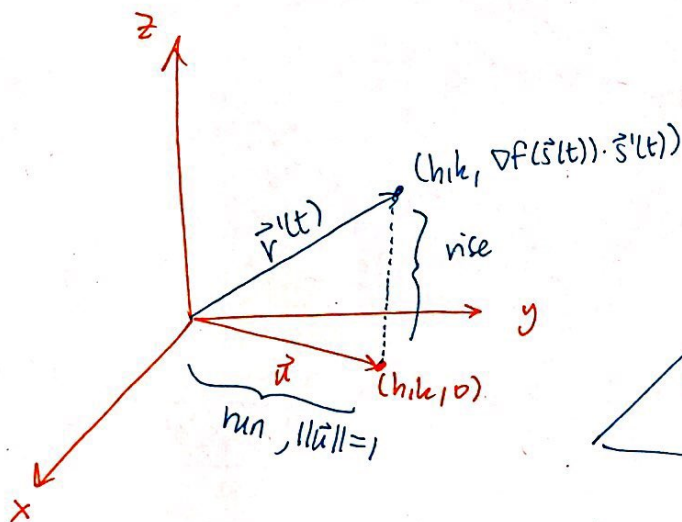 z
(h,k, ∇f(s⃗(t))·s⃗'(t))
r⃗'(t)
rise
y
u⃗
(h,k,0)
run, ||u⃗||=1
x